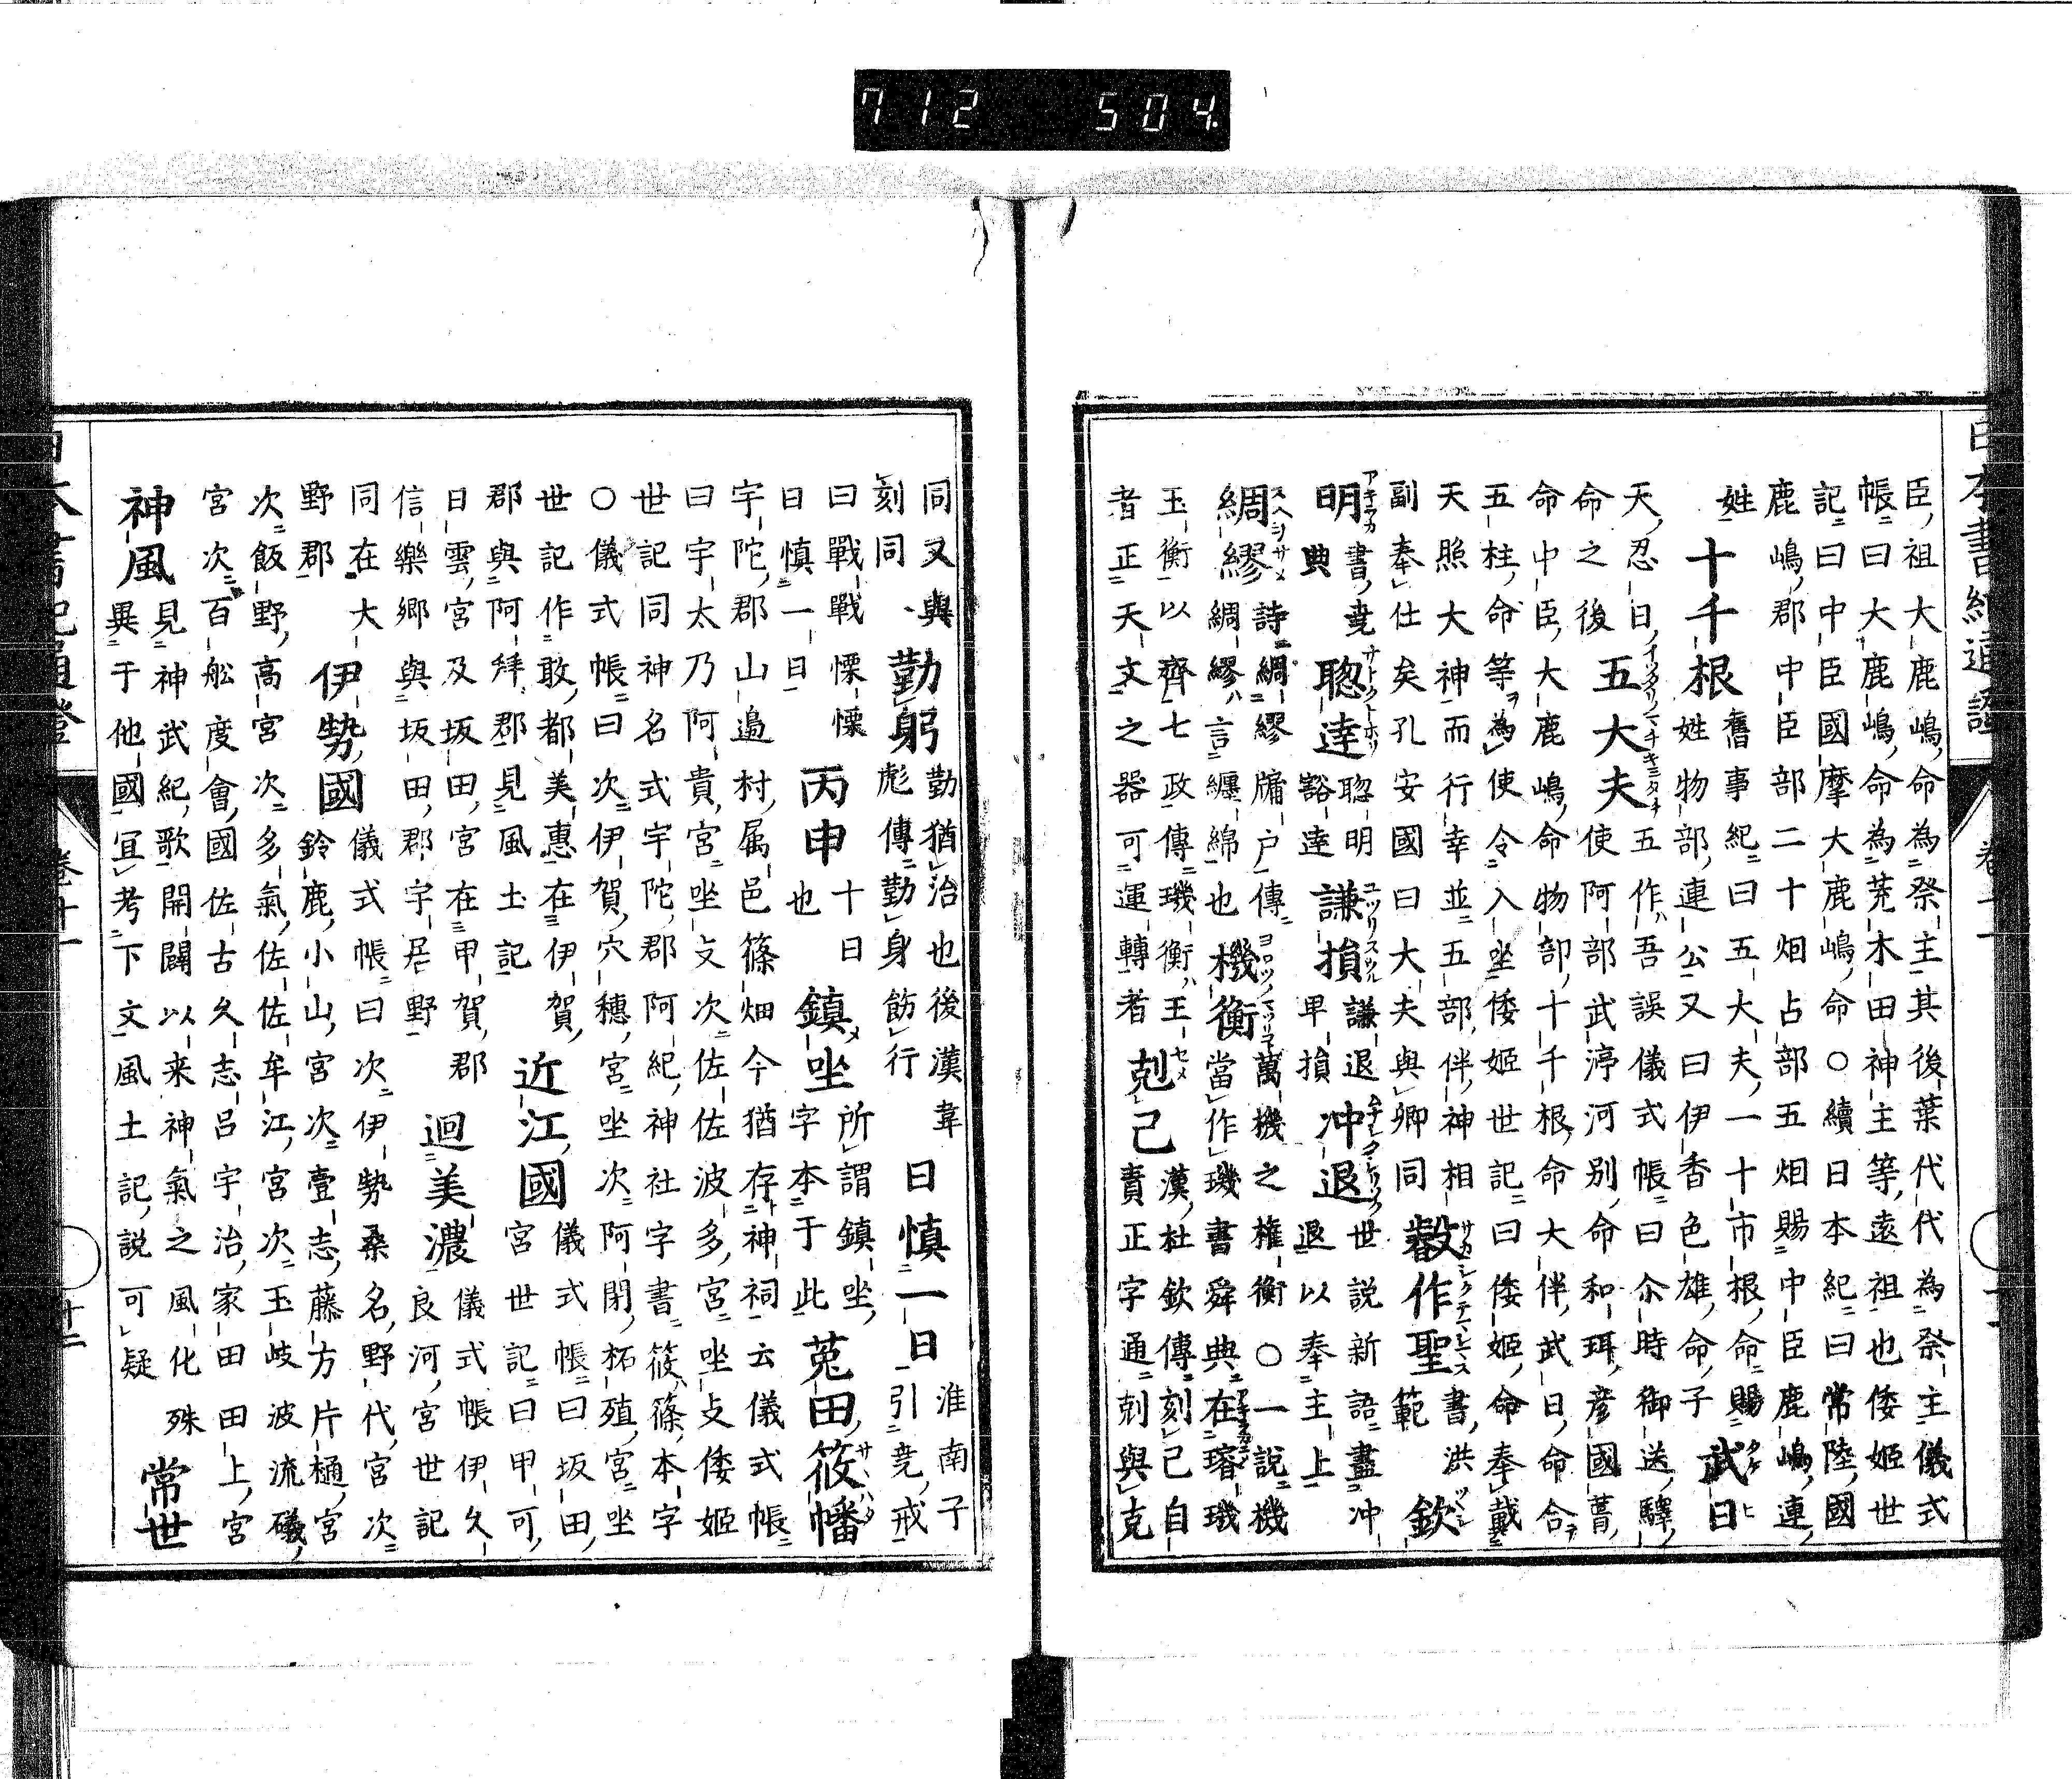 712 504
臣祖大鹿嶋命為祭主其後葉代代為祭主儀式
帳曰大鹿嶋命為荒木田神主等遠祖也倭姬世
記曰中臣國摩大鹿嶋命○續日本紀曰常陸國
鹿嶋郡中臣部二十烟占部五烟賜中臣鹿嶋連
姓 十千根 舊事紀曰五大夫一十市根命賜
姓物部連公又曰伊香色雄命子 武日
天忍日命之後 五大夫 五作吾誤儀式帳曰尒時御送驛
使阿部武渟河別命和珥彦國葺
命中臣大鹿嶋命物部十千根命大伴武日命合
五柱命等為使令入坐倭姬世記曰倭姬命奉戴
天照大神而行幸並五部伴神相
副奉仕矣孔安國曰大夫與卿同 叡作聖 書洪範 欽
明 書堯典 聰達 聰明豁達 謙損 謙退卑損 冲退 世説新語盡冲退以奉主上
綢繆 詩綢繆牖戶傳綢繆言纏綿也 機衡 萬機之権衡○一説機當作璣書舜典在璿璣
玉衡以齊七政傳璣衡王者正天文之器可運轉者 剋己 漢杜欽傳刻己自責正字通剋與克
同又與刻同 勤躬 勤猶治也後漢韋彪傳勤身飭行 日慎一日 淮南子引堯戒
曰戰戰慄慄日慎一日 丙申 十日也 鎮坐 所謂鎮坐字本于此 菟田筱幡
宇陀郡山邉村属邑篠畑今猶存神祠云儀式帳
曰宇太乃阿貴宮坐攴次佐佐波多宮坐攴倭姬
世記同神名式宇陀郡阿紀神社字書筱篠本字
○儀式帳曰次伊賀穴穗宮坐次阿閇柘殖宮坐
世記作敢都美惠在伊賀郡與阿拜郡見風土記 近江國 儀式帳曰坂田宮世記曰甲可
日雲宮及坂田宮在甲賀郡
信樂鄉與坂田郡宇居野 迴美濃 儀式帳伊久良河宮世記
同在大野郡 伊勢國 儀式帳曰次伊勢桑名野代宮次
鈴鹿小山宮次壹志藤方片樋宮
次飯野高宮次多氣佐佐牟江宮次玉岐波流礒
宮次百舩度會國佐古久志呂宇治家田田上宮
神風 見神武紀歌開闢以来神氣之風化殊
異于他國宜考下文風土記説可疑 常世